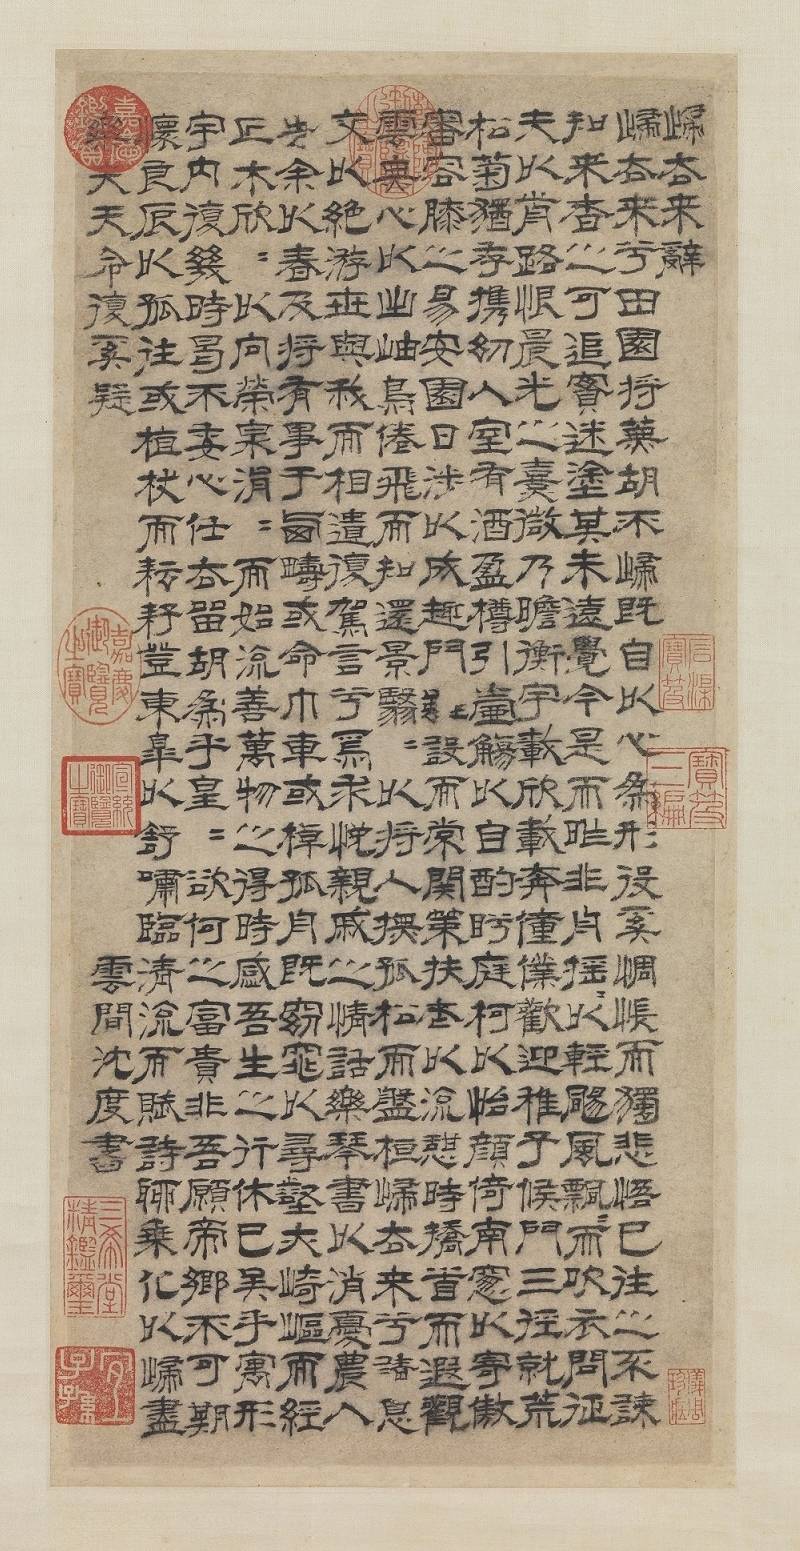 歸去來辭
歸去來兮田園將蕪胡不歸既自以心為形役奚惆悵而獨悲悟已往之不諫
知來者之可追實迷塗其未遠覺今是而昨非舟搖〻以輕颺風飄〻而吹衣問征
夫以前路恨晨光之熹微乃瞻衡宇載欣載奔僮僕歡迎稚子候門三徑就荒
松菊猶存攜幼入室有酒盈樽引壺觴以自酌眄庭柯以怡顏倚南窗以寄傲
審容膝之易安園日涉以成趣門雖設而常關策扶老以流憩時矯首而遐觀
雲無心以出岫鳥倦飛而知還景翳〻以將入撫孤松而盤桓歸去來兮請息
交以絕游世與我而相遺復駕言兮焉求悅親戚之情話樂琴書以消憂農人
告余以春及將有事于西疇或命巾車或棹孤舟既窈窕以尋壑亦崎嶇而經
丘木欣〻以向榮泉涓〻而始流善萬物之得時感吾生之行休已矣乎寓形
宇內復幾時曷不委心任去留胡為乎皇〻欲何之富貴非吾願帝鄉不可期
懷良辰以孤往或植杖而耘耔登東皋以舒嘯臨清流而賦詩聊乘化以歸盡
樂夫天命復奚疑
雲間沈度書
石渠寶笈
寶笈三編
儀周珍藏
嘉慶鑑賞
嘉慶御覽之寶
宣統御覽之寶
三希堂精鑑璽
宜子孫